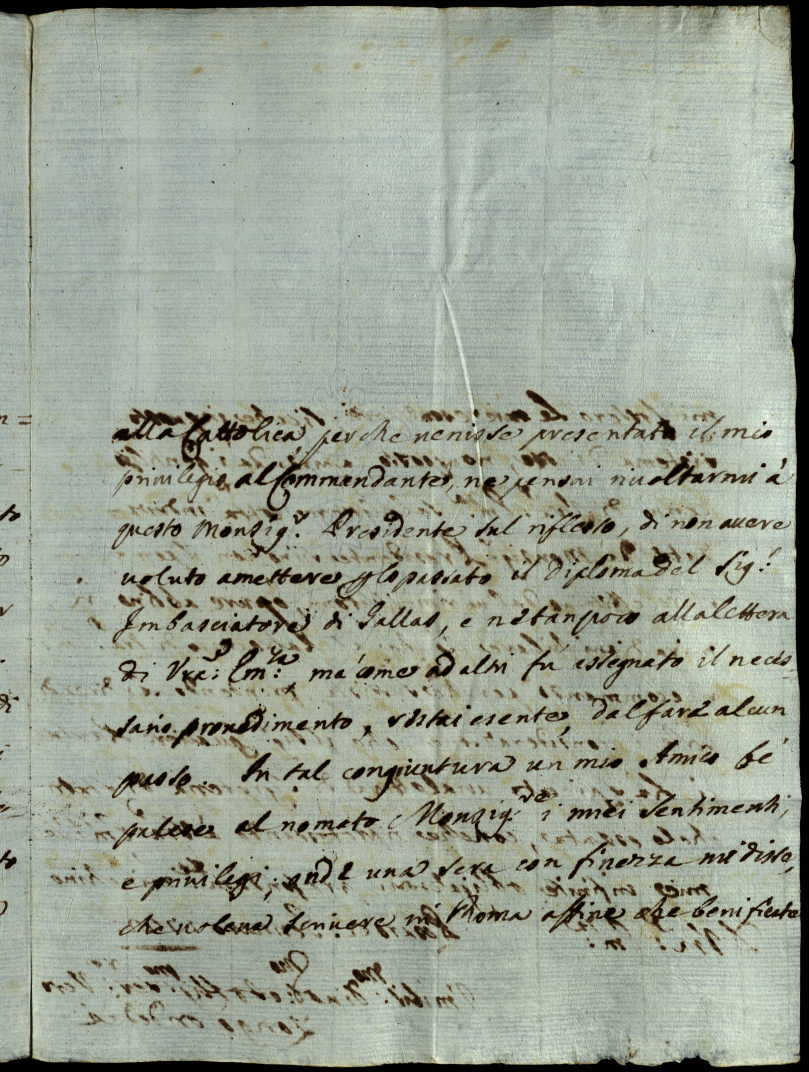 alla Cattolica perche venisse presentato il mio
privilegio al Commendante, ne pensai rivoltarmi à
questo Monsig.r Presidente sul riflesso, di non avere
voluto amettere p lo passato il Diploma del Sig.r
Imbasciatore di Gallas, e ne tanpoco alla lettera
di Vra: Em.za, ma come ad altri fù assegnato il neces-
sario provedimento, restai esente, dal fare alcun
passo. In tal congiuntura un mio Amico fè
palese al nomato Monsig.re i miei sentimenti,
e privilegi, onde una sera con finezza mi disse,
che voleva scrivere in Roma affine che benificato